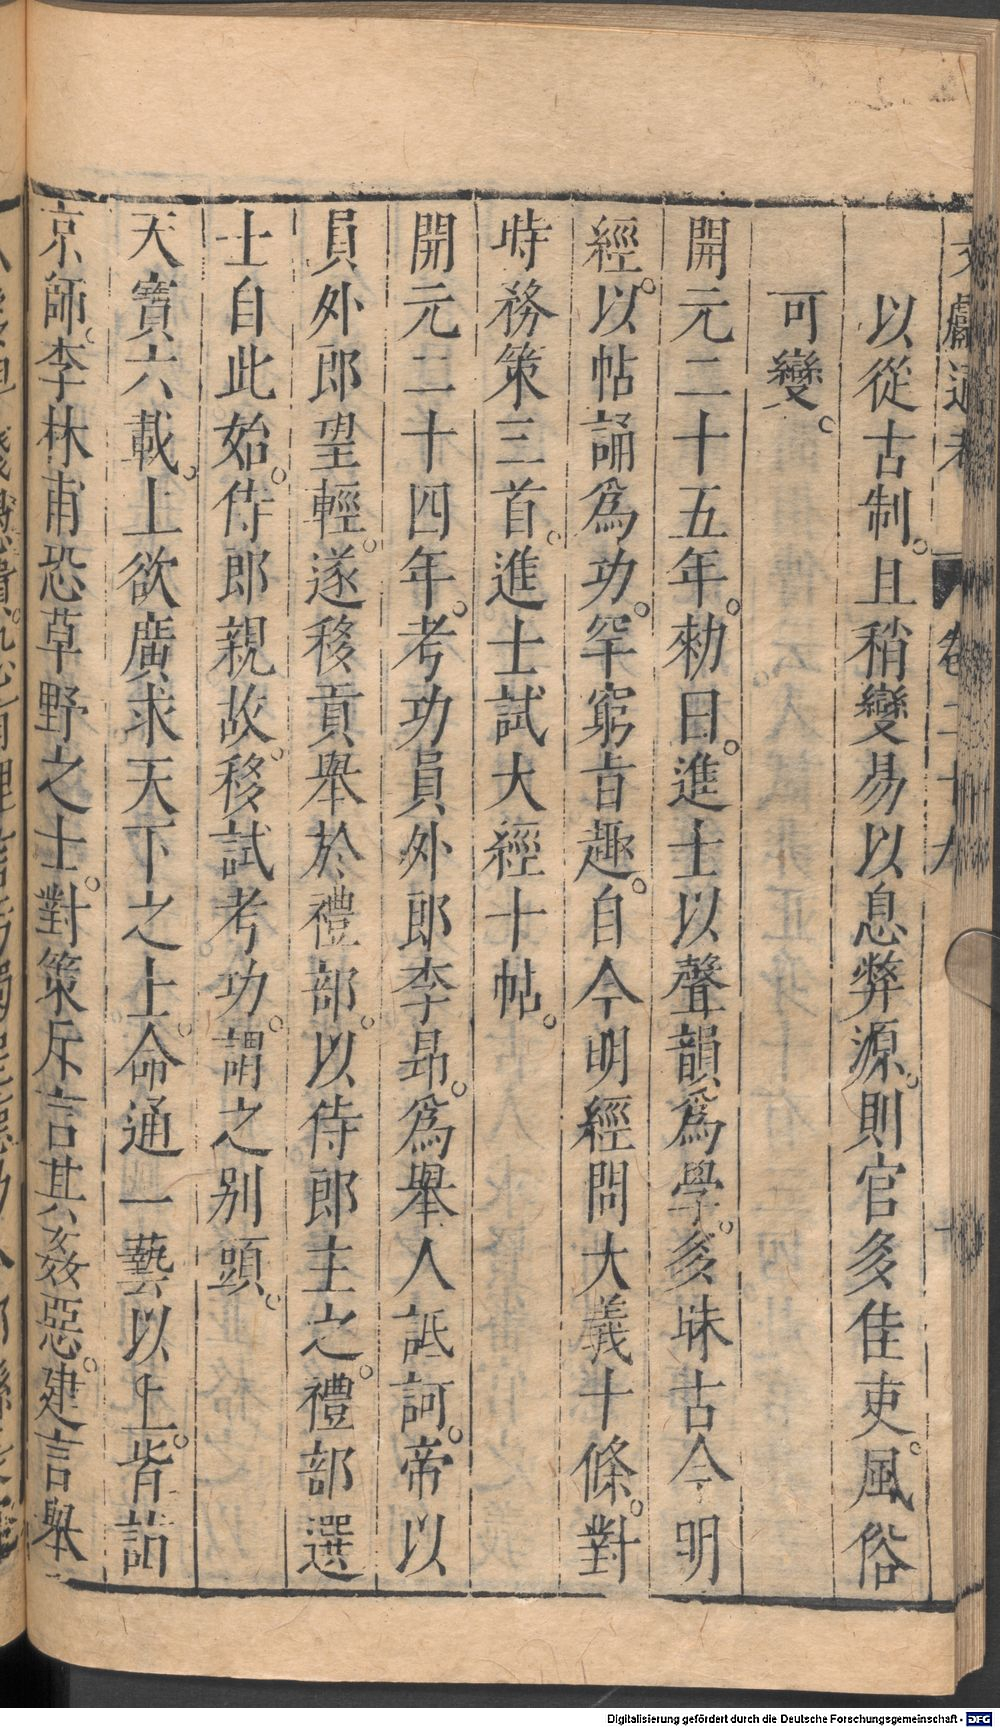 文獻通考 卷二十九
以從古制。且稍變易以息弊源。則官多佳吏。風俗
可變。
開元二十五年。勑曰。進士以聲韻爲學。多昧古今。明
經。以帖誦爲功。罕窮旨趣。自今明經問大義十條。對
時務策三首。進士試大經十帖。
開元二十四年。考功員外郎李昂。爲舉人詆訶。帝以
員外郎望輕。遂移貢舉於禮部。以侍郎主之。禮部選
士自此始。侍郎親故。移試考功。謂之别頭。
天寶六載。上欲廣求天下之士。命通一藝以上。皆詣
京師。李林甫恐草野之士。對策斥言其姦惡。建言舉
Digitalisierung gefördert durch die Deutsche Forschungsgemeinschaft - DFG